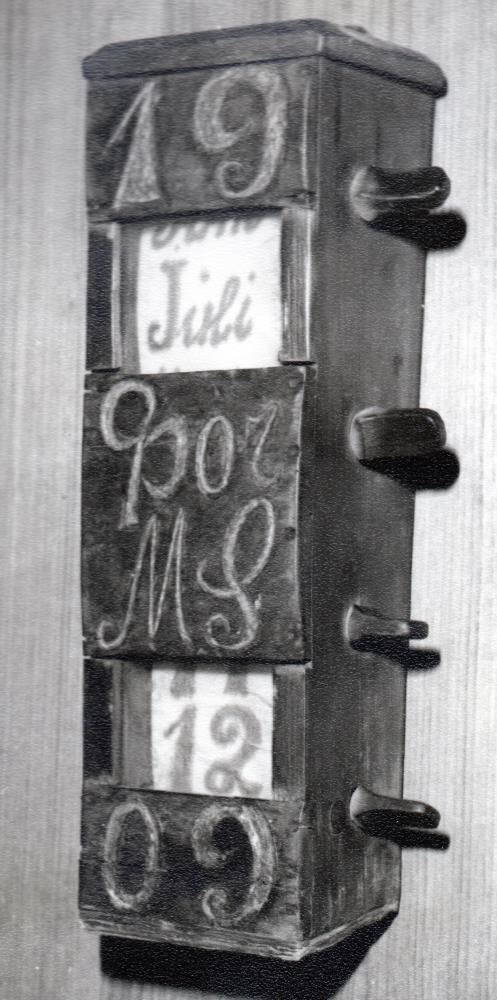 19
Juli
MS
12
09